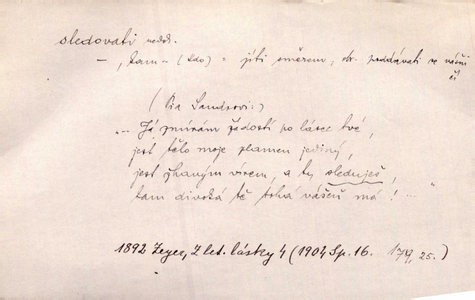 sledovati nedok.
– , kam – (kdo) = jíti směrem, ob. poddávati se vášni
či
(Pia Sandrovi:)
„... Já zmírám žádostí po lásce tvé,
jest tělo moje plamen jediný,
jest žhavým vírem, a ty sleduješ,
tam divoká tě vášeň má! ... "
1892 Zeyer, Z let. lásky 4 (1904 Sp. 16. 179, 25.)